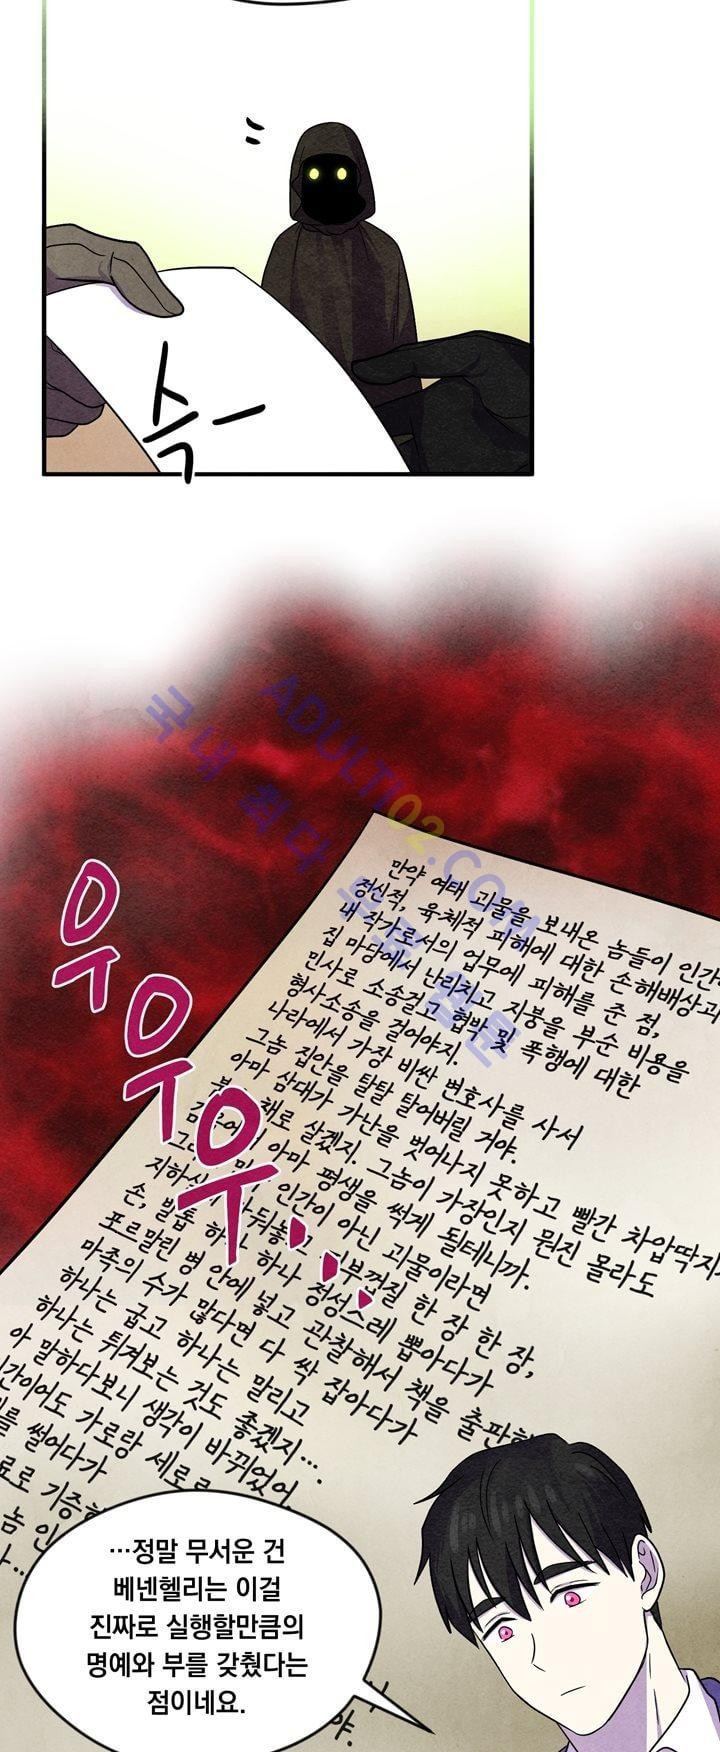 슥
국내 최다 무료 웹툰
ADULTI02.COM
우우우...
만약 여태 괴물을 보내온 놈들이 인간
정신적, 육체적 피해에 대한 손해배상과
내 작가로서의 업무에 피해를 준 점,
집 마당에서 난리치고 지붕을 부순 비용을
민사로 소송걸고 협박 및 폭행에 대한
형사소송을 걸어야지.
나라에서 가장 비싼 변호사를 사서
그놈 집안을 탈탈 털어버릴 거야.
아마 삼대가 가난을 벗어나지 못하고 빨간 차압딱지
채로 살겠지. 그놈이 가장인지 뭔진 몰라도
아마 평생을 썩게 될테니까.
인간이 아닌 괴물이라면
지하실 한 장 한 장,
손, 발톱 하나 하나 정성스레 뽑아다가
포르말린 병 안에 넣고 관찰해서 책을 출판
마족의 수가 많다면 다 싹 잡아다가
하나는 굽고 하나는 말리고
하나는 튀겨보는 것도 좋겠지...
아 말하다보니 생각이 바뀌었어
간이어도 가로랑 세로
를 썰어다가
료로 기증
놈 인
…정말 무서운 건
베넨헬리는 이걸
진짜로 실행할만큼의
명예와 부를 갖췄다는
점이네요.
야.